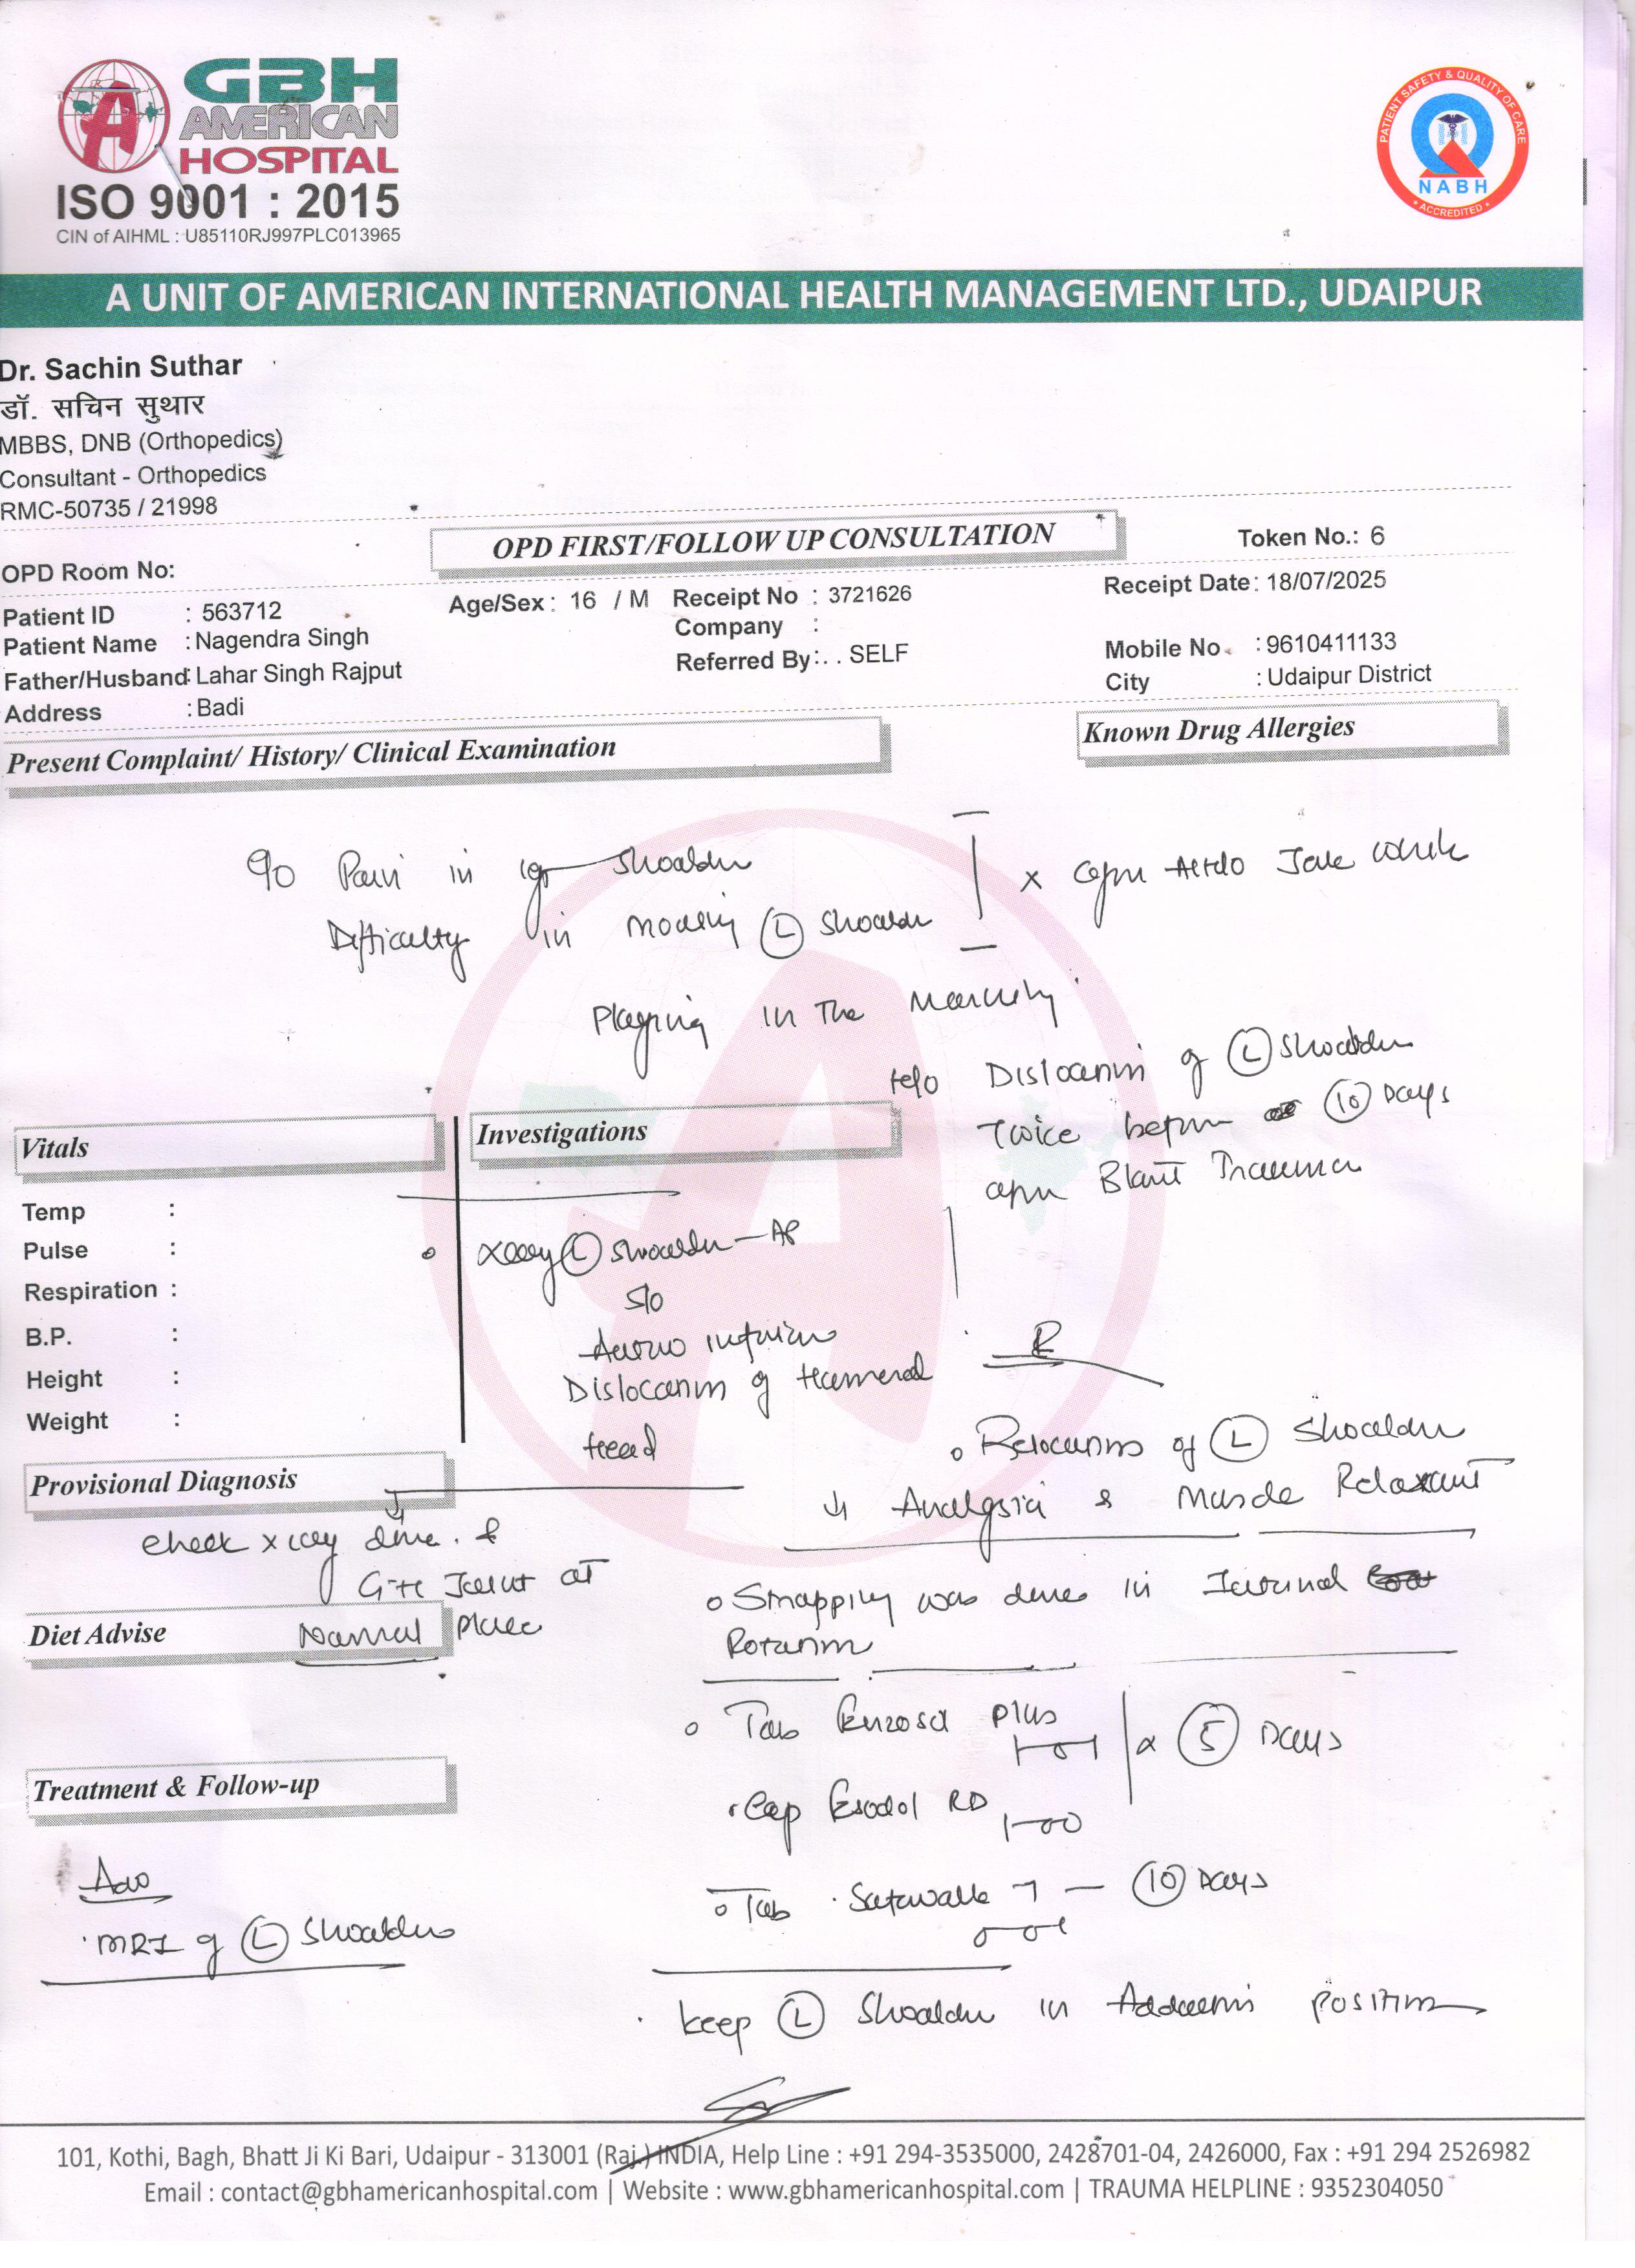 GBH
AMERICAN
HOSPITAL
ISO 9001 : 2015
CIN of AIHML : U85110RJ997PLC013965
PATIENT SAFETY & QUALITY OF CARE
NABH
ACCREDITED
A UNIT OF AMERICAN INTERNATIONAL HEALTH MANAGEMENT LTD., UDAIPUR
Dr. Sachin Suthar
डॉ. सचिन सुथार
MBBS, DNB (Orthopedics)
Consultant - Orthopedics
RMC-50735 / 21998
OPD FIRST/FOLLOW UP CONSULTATION
Token No.: 6
OPD Room No:
Patient ID : 563712 Age/Sex : 16 / M Receipt No : 3721626 Receipt Date : 18/07/2025
Patient Name : Nagendra Singh Company : Mobile No. : 9610411133
Father/Husband: Lahar Singh Rajput Referred By:. . SELF City : Udaipur District
Address : Badi
Present Complaint/ History/ Clinical Examination Known Drug Allergies
c/o Pain in Shoulder
Difficulty in moving (L) Shoulder
Playing in the
H/o Dislocation of (L) Shoulder
Twice before (10) Days
Blunt Trauma
Vitals
Temp :
Pulse :
Respiration :
B.P. :
Height :
Weight :
Investigations
Xray (L) Shoulder - AP
S/o
inferior
Dislocation of Humeral
Head
R
Relocation of (L) Shoulder
↓ Analgesia & Muscle Relaxant
Provisional Diagnosis
check xray done. &
GH Joint at
Normal place
Strapping was done in Internal
Rotation
Diet Advise
Tab Plus
1-0-1 x (5) Days
Cap RD
1-0-0
Tab - (10) Days
0-0-1
Treatment & Follow-up
Adv
MRI of (L) Shoulder
keep (L) Shoulder in Adduction position
101, Kothi, Bagh, Bhatt Ji Ki Bari, Udaipur - 313001 (Raj.) INDIA, Help Line : +91 294-3535000, 2428701-04, 2426000, Fax : +91 294 2526982
Email : contact@gbhamericanhospital.com | Website : www.gbhamericanhospital.com | TRAUMA HELPLINE : 9352304050